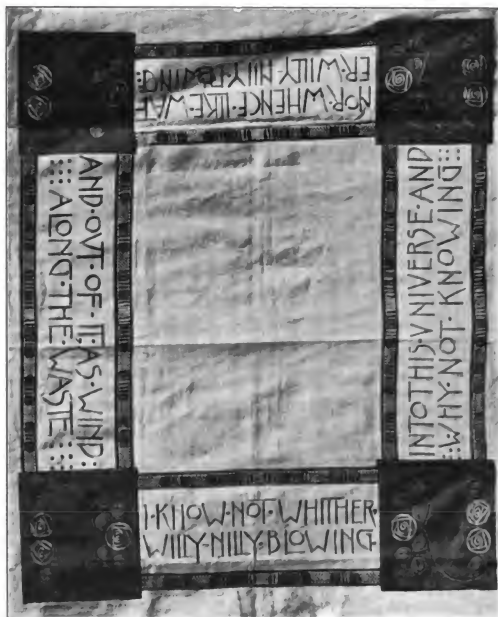 INTO·THIS·VNIVERSE·AND
WHY·NOT·KNOWING
NOR·WHENCE·LIKE·WAT
ER·WILLY·NILLY·FLOWING
AND·OVT·OF·IT,·AS·WIND
ALONG·THE·WASTE
I·KNOW·NOT·WHITHER·
WILLY·NILLY·BLOWING·